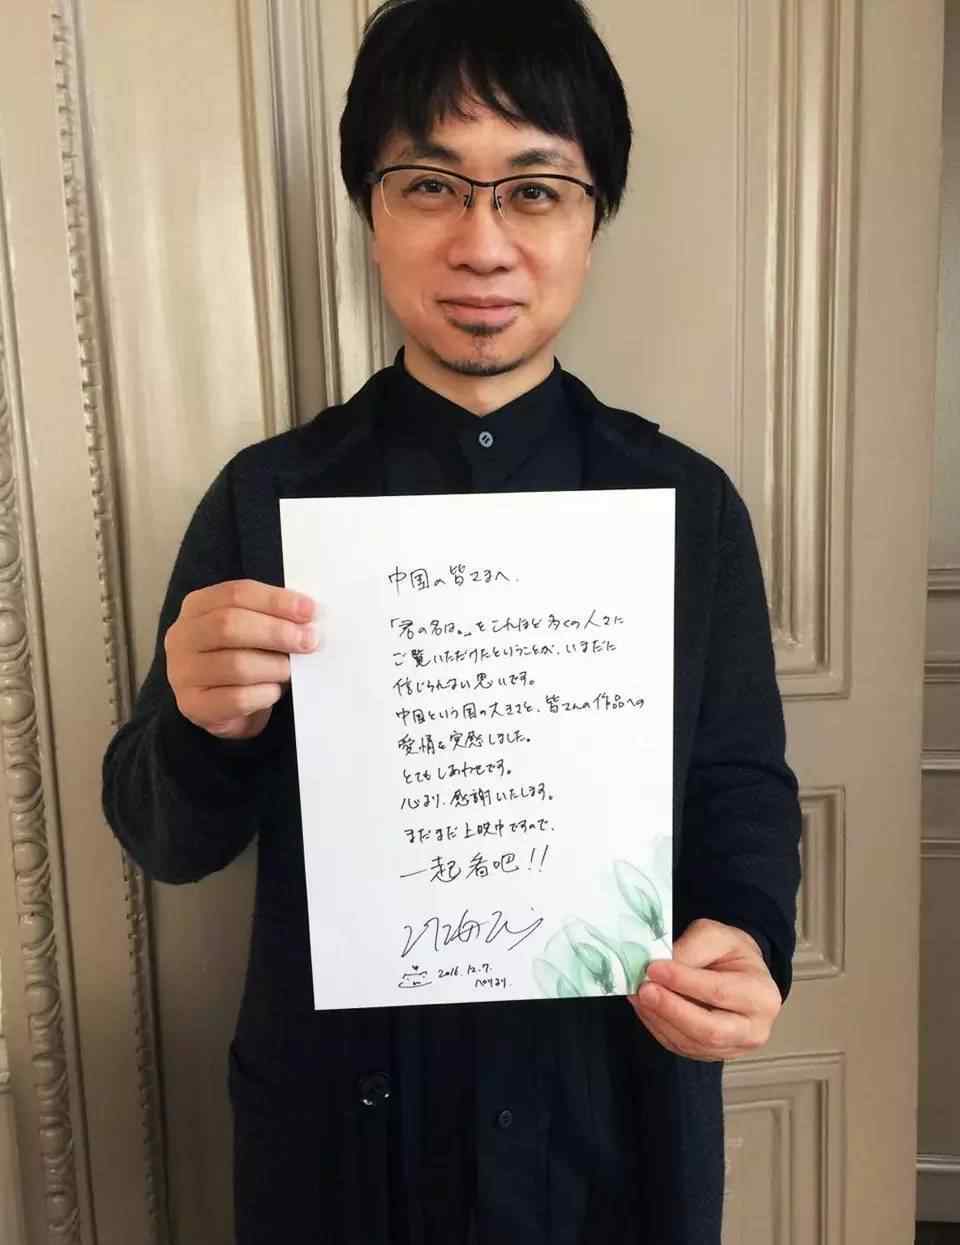 中国の皆さまへ、
「君の名は。」をこれほど多くの人々に
ご覧いただけたということが、いまだに
信じられない思いです。
中国という国の大きさと、皆さんの作品への
愛情を実感しました。
とてもしあわせです。
心より、感謝いたします。
まだまだ上映中ですので、
一起看吧!!
2016.12.7.
パリより.